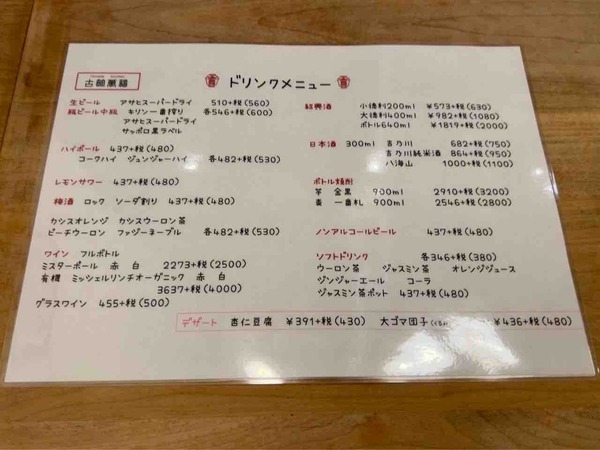 ドリンクメニュー
生ビール アサヒスーパードライ 510+税(560)
瓶ビール中瓶 キリン一番搾り 各546+税(600)
アサヒスーパードライ
サッポロ黒ラベル
ハイボール 437+税(480)
コークハイ ジュンジャーハイ 各482+税(530)
レモンサワー 437+税(480)
梅酒 ロック ソーダ割り 437+税(480)
カシスオレンジ カシスウーロン茶
ピーチウーロン ファジーネーブル 各482+税(530)
ワイン フルボトル
ミスターポール 赤 白 2273+税(2500)
有機 ミッシェルリンチオーガニック 赤 白
3637+税(4000)
グラスワイン 455+税(500)
紹興酒 小徳利200ml ¥573+税(630)
大徳利400ml ¥982+税(1080)
ボトル640ml ¥1819+税(2000)
日本酒 300ml 吉乃川 682+税(750)
吉乃川純米酒 864+税(950)
八海山 1000+税(1100)
ボトル焼酎
芋 金黒 900ml 2910+税(3200)
麦 一番札 900ml 2546+税(2800)
ノンアルコールビール 437+税(480)
ソフトドリンク 各346+税(380)
ウーロン茶 ジャスミン茶 オレンジジュース
ジンジャーエール コーラ
ジャスミン茶ポット 437+税(480)
デザート 杏仁豆腐 ¥391+税(430) 大ゴマ団子 ¥436+税(480)